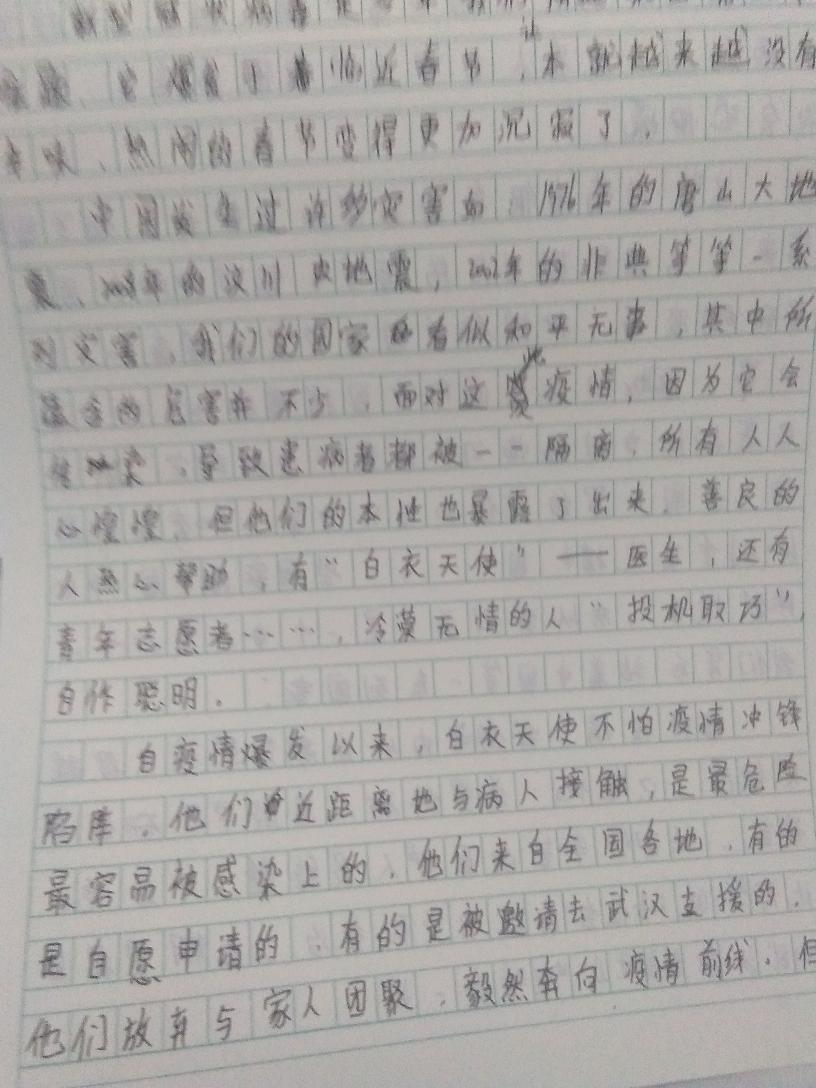 新型冠状病毒
它爆发于临近春节,让本就越来越没有
年味、热闹的春节变得更加沉寂了。
中国发生过许多灾害如:1976年的唐山大地
震、2008年的汶川大地震,2002年的非典等等一系
列灾害,我们的国家看似和平无事,其中所
蕴含的危害并不少,面对这此疫情,因为它会
传染,导致患病者都被一一隔离,所有人人
心惶惶,但他们的本性也暴露了出来,善良的
人热心帮助,有“白衣天使”——医生,还有
青年志愿者……,冷漠无情的人“投机取巧”,
自作聪明。
自疫情爆发以来,白衣天使不怕疫情冲锋
陷阵,他们近距离地与病人接触,是最危险
最容易被感染上的,他们来自全国各地,有的
是自愿申请的,有的是被邀请去武汉支援的,
他们放弃与家人团聚,毅然奔向疫情前线,但